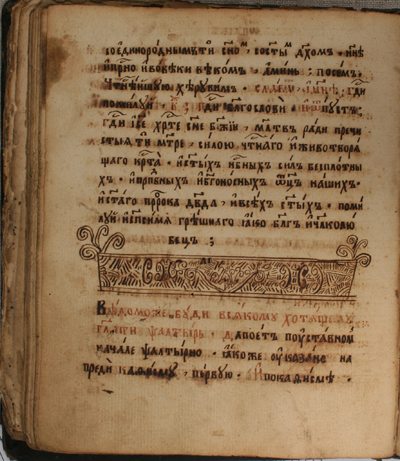 соединороднымъти сн҃ом · восты́м дх҃ом · ннѣ
ипрⷭ҇но ивовѣки вѣкомъ · аминь ; посемъ
чтⷭ҇нѣйшую херувимъ · слава и ннѣ · гдⷭ҇и
помилуй · г҃ · гдⷭ҇и благослови · и ѿпустъ ;
гдⷭ҇и і҆се хрⷭ҇те сн҃е бж҃іи · млтвъ ради пречи
стыя ти мт҃ре · силою чтⷭ҇наго и животворя
щаго крⷭ҇та · и ст҃ыхъ нбⷭ҇ныхъ силъ бесплотны
хъ · и прпⷣбныхъ и бг҃оносныхъ ѻ҃цъ нашихъ ·
и ст҃аго прⷪ҇рока дв҃да · и всѣхъ ст҃ыхъ · поми
луй и спⷭ҇и мѧ грѣшнаго ꙗко бл҃гъ и чл҃колю
бецъ ;
Вѣдомо же буди всякому хотящему
глаⷢ҇ти ѱалтырь · да поетъ по уставном
начале ѱалтырно · ꙗкоже указане на
преди каѳисму · первую · и покаянсмѣ ·